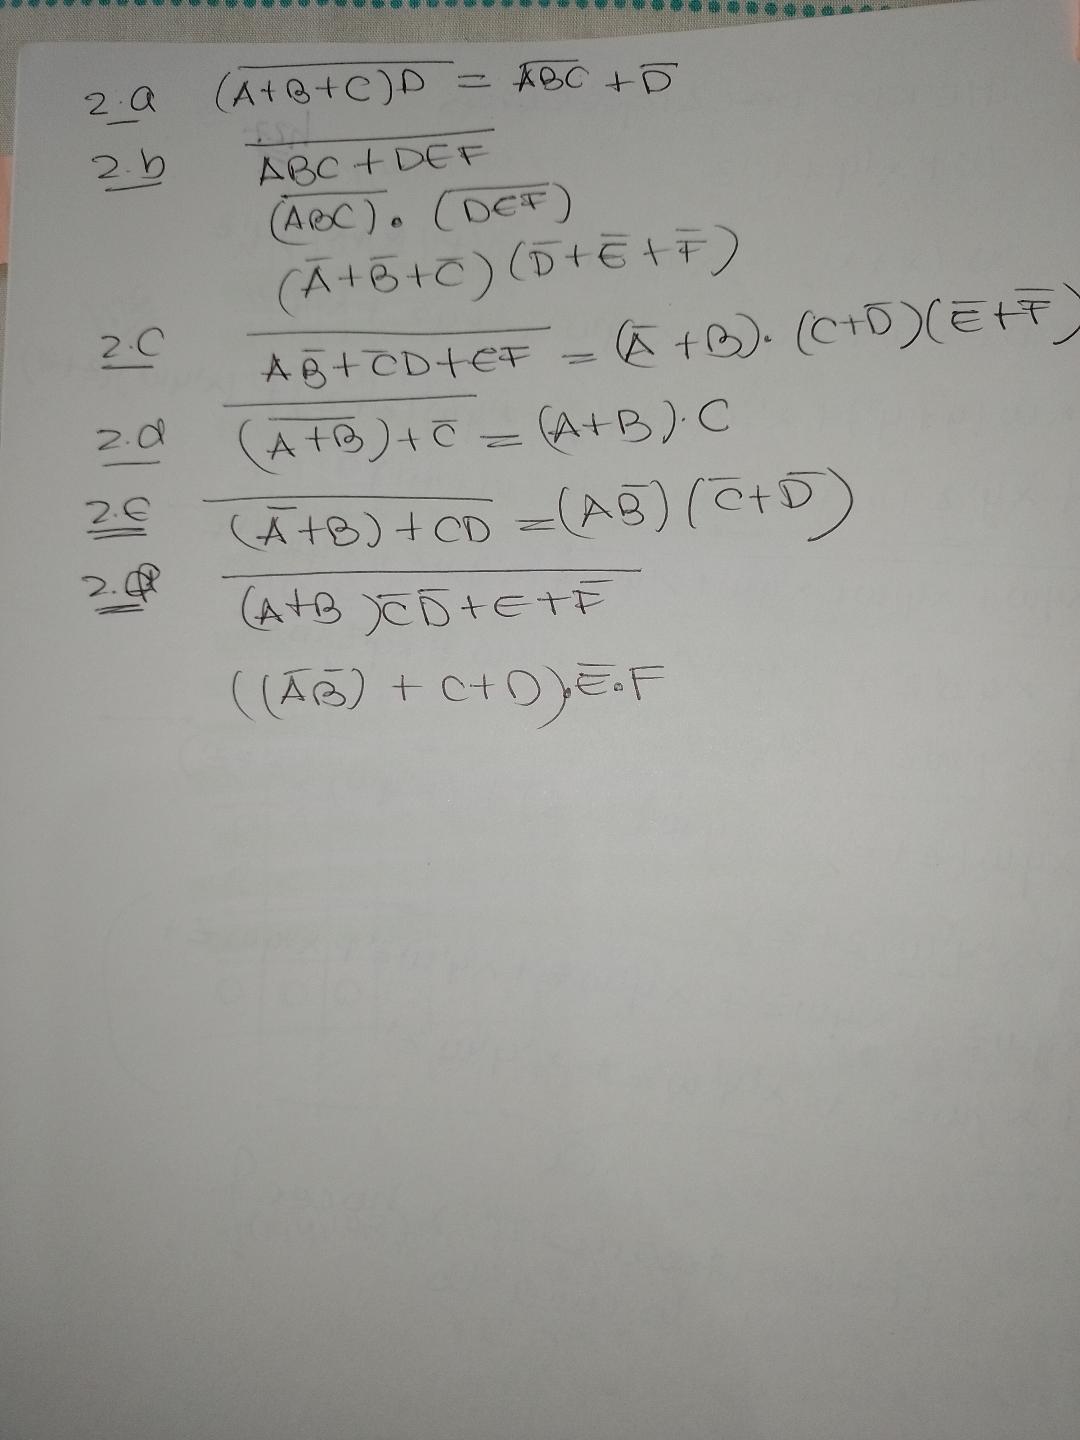 2.a (A̅+̅B̅+̅C̅)̅D̅ = A̅B̅C̅ + D̅
2.b A̅B̅C̅ ̅+̅ ̅D̅E̅F̅
(A̅B̅C̅)̅ . (D̅E̅F̅)
(A̅+B̅+C̅)(D̅+E̅+F̅)
2.C \overline{AB̅+C̅D+EF} = (A̅+B). (C+D̅)(E̅+F̅)
2.d \overline{(\overline{A+B})+C̅} = (A+B).C
2.E \overline{(A̅+B)+CD} = (AB̅)(C̅+D̅)
\overline{(A+B)C̅D̅+E+F̅}
((A̅B̅) + C+D).E̅.F